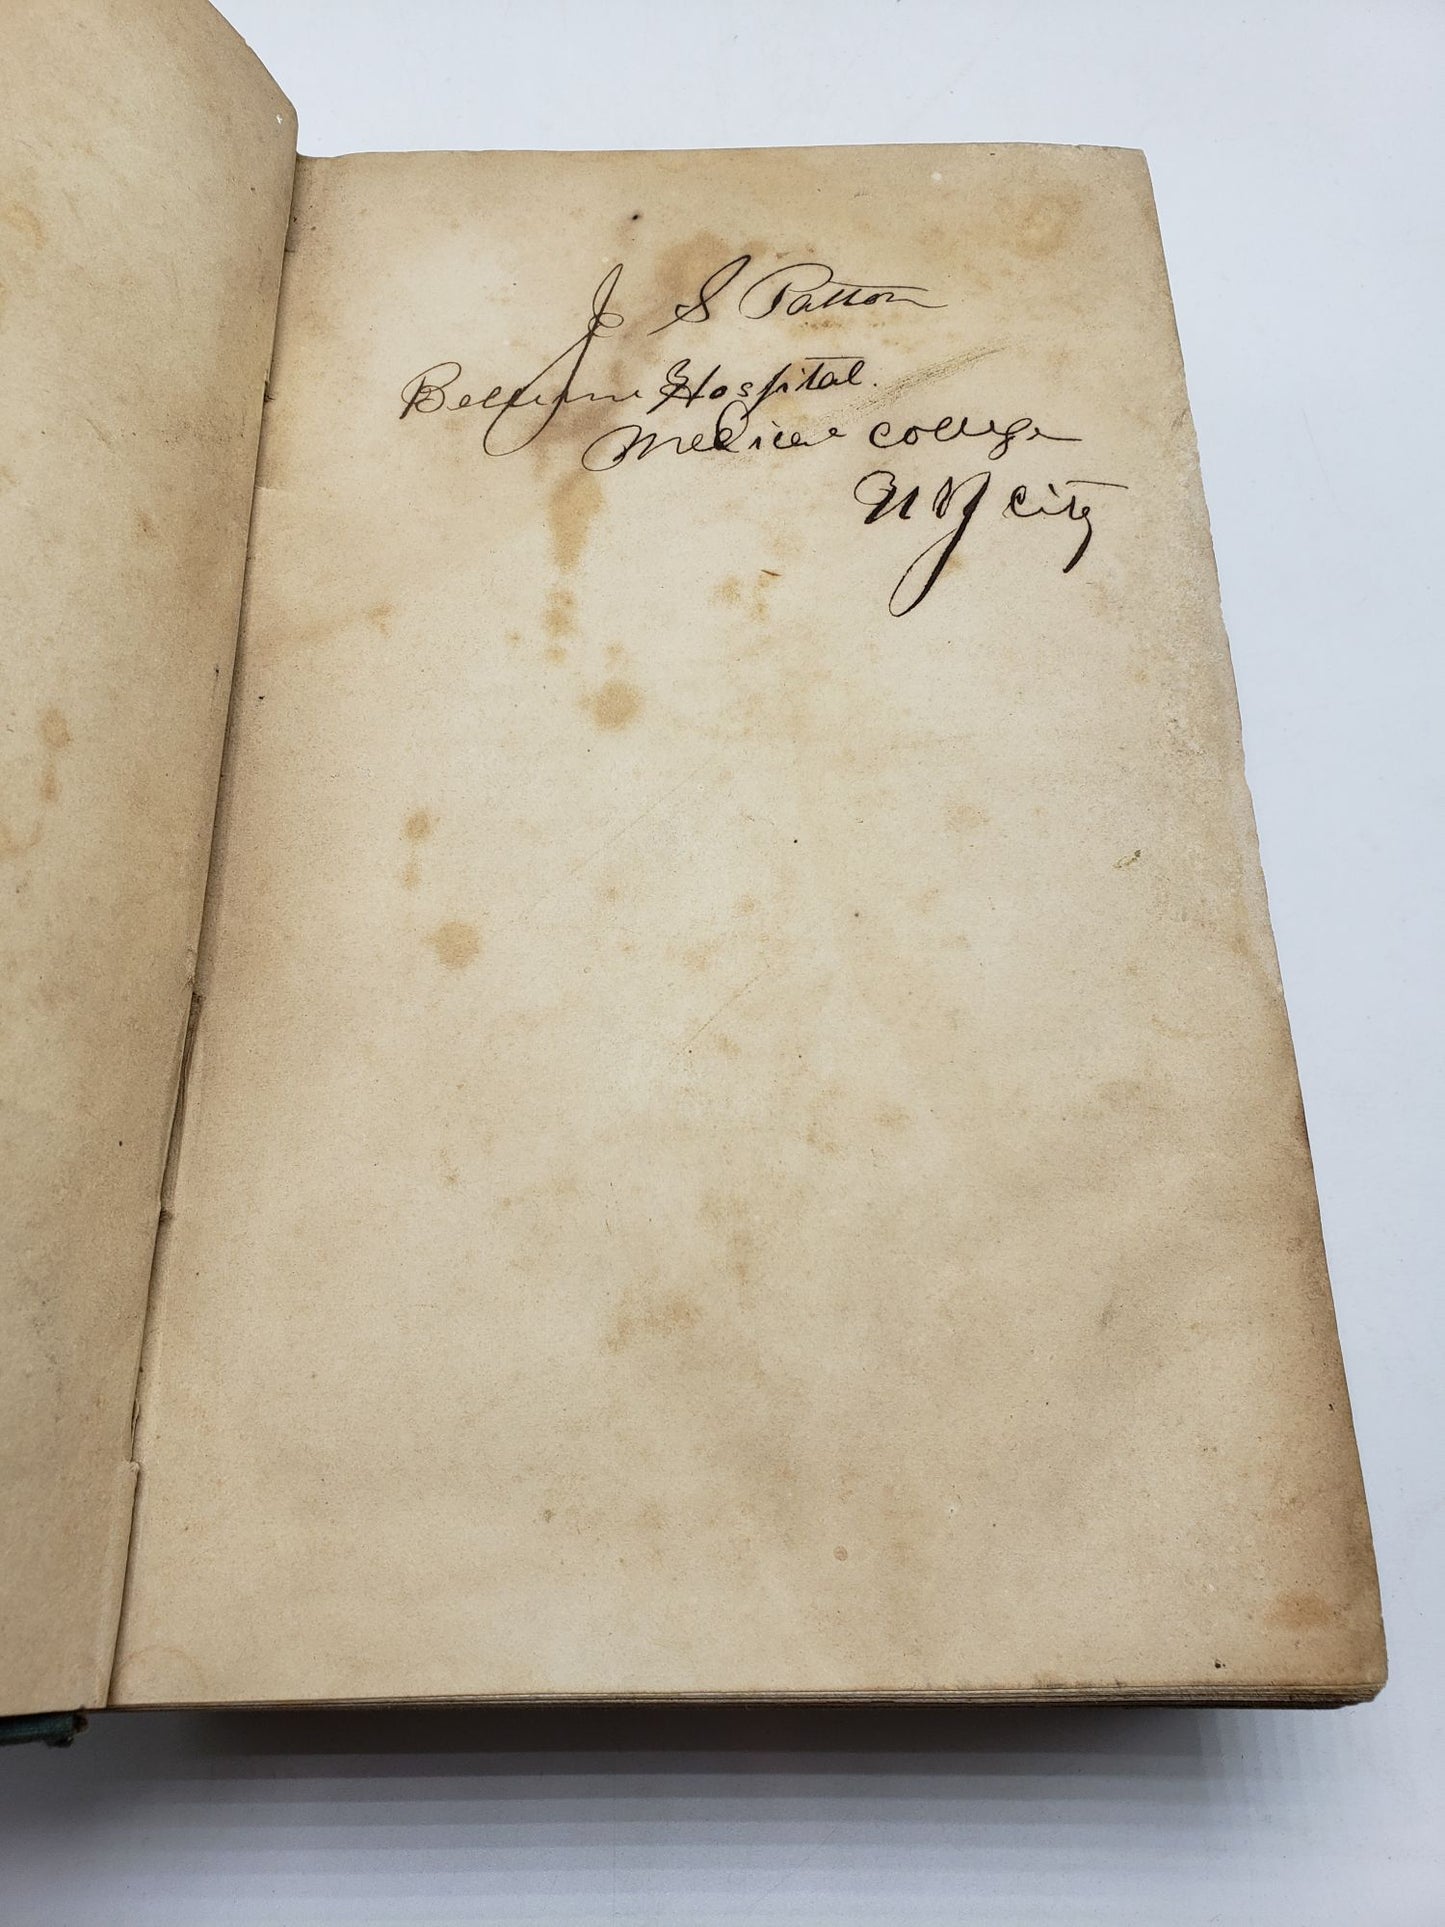 J S Patton
Bellevue Hospital.
Medical College
N Y City